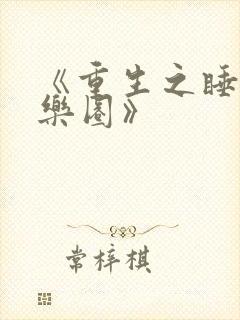 《重生之睡
樂園》
常梓棋